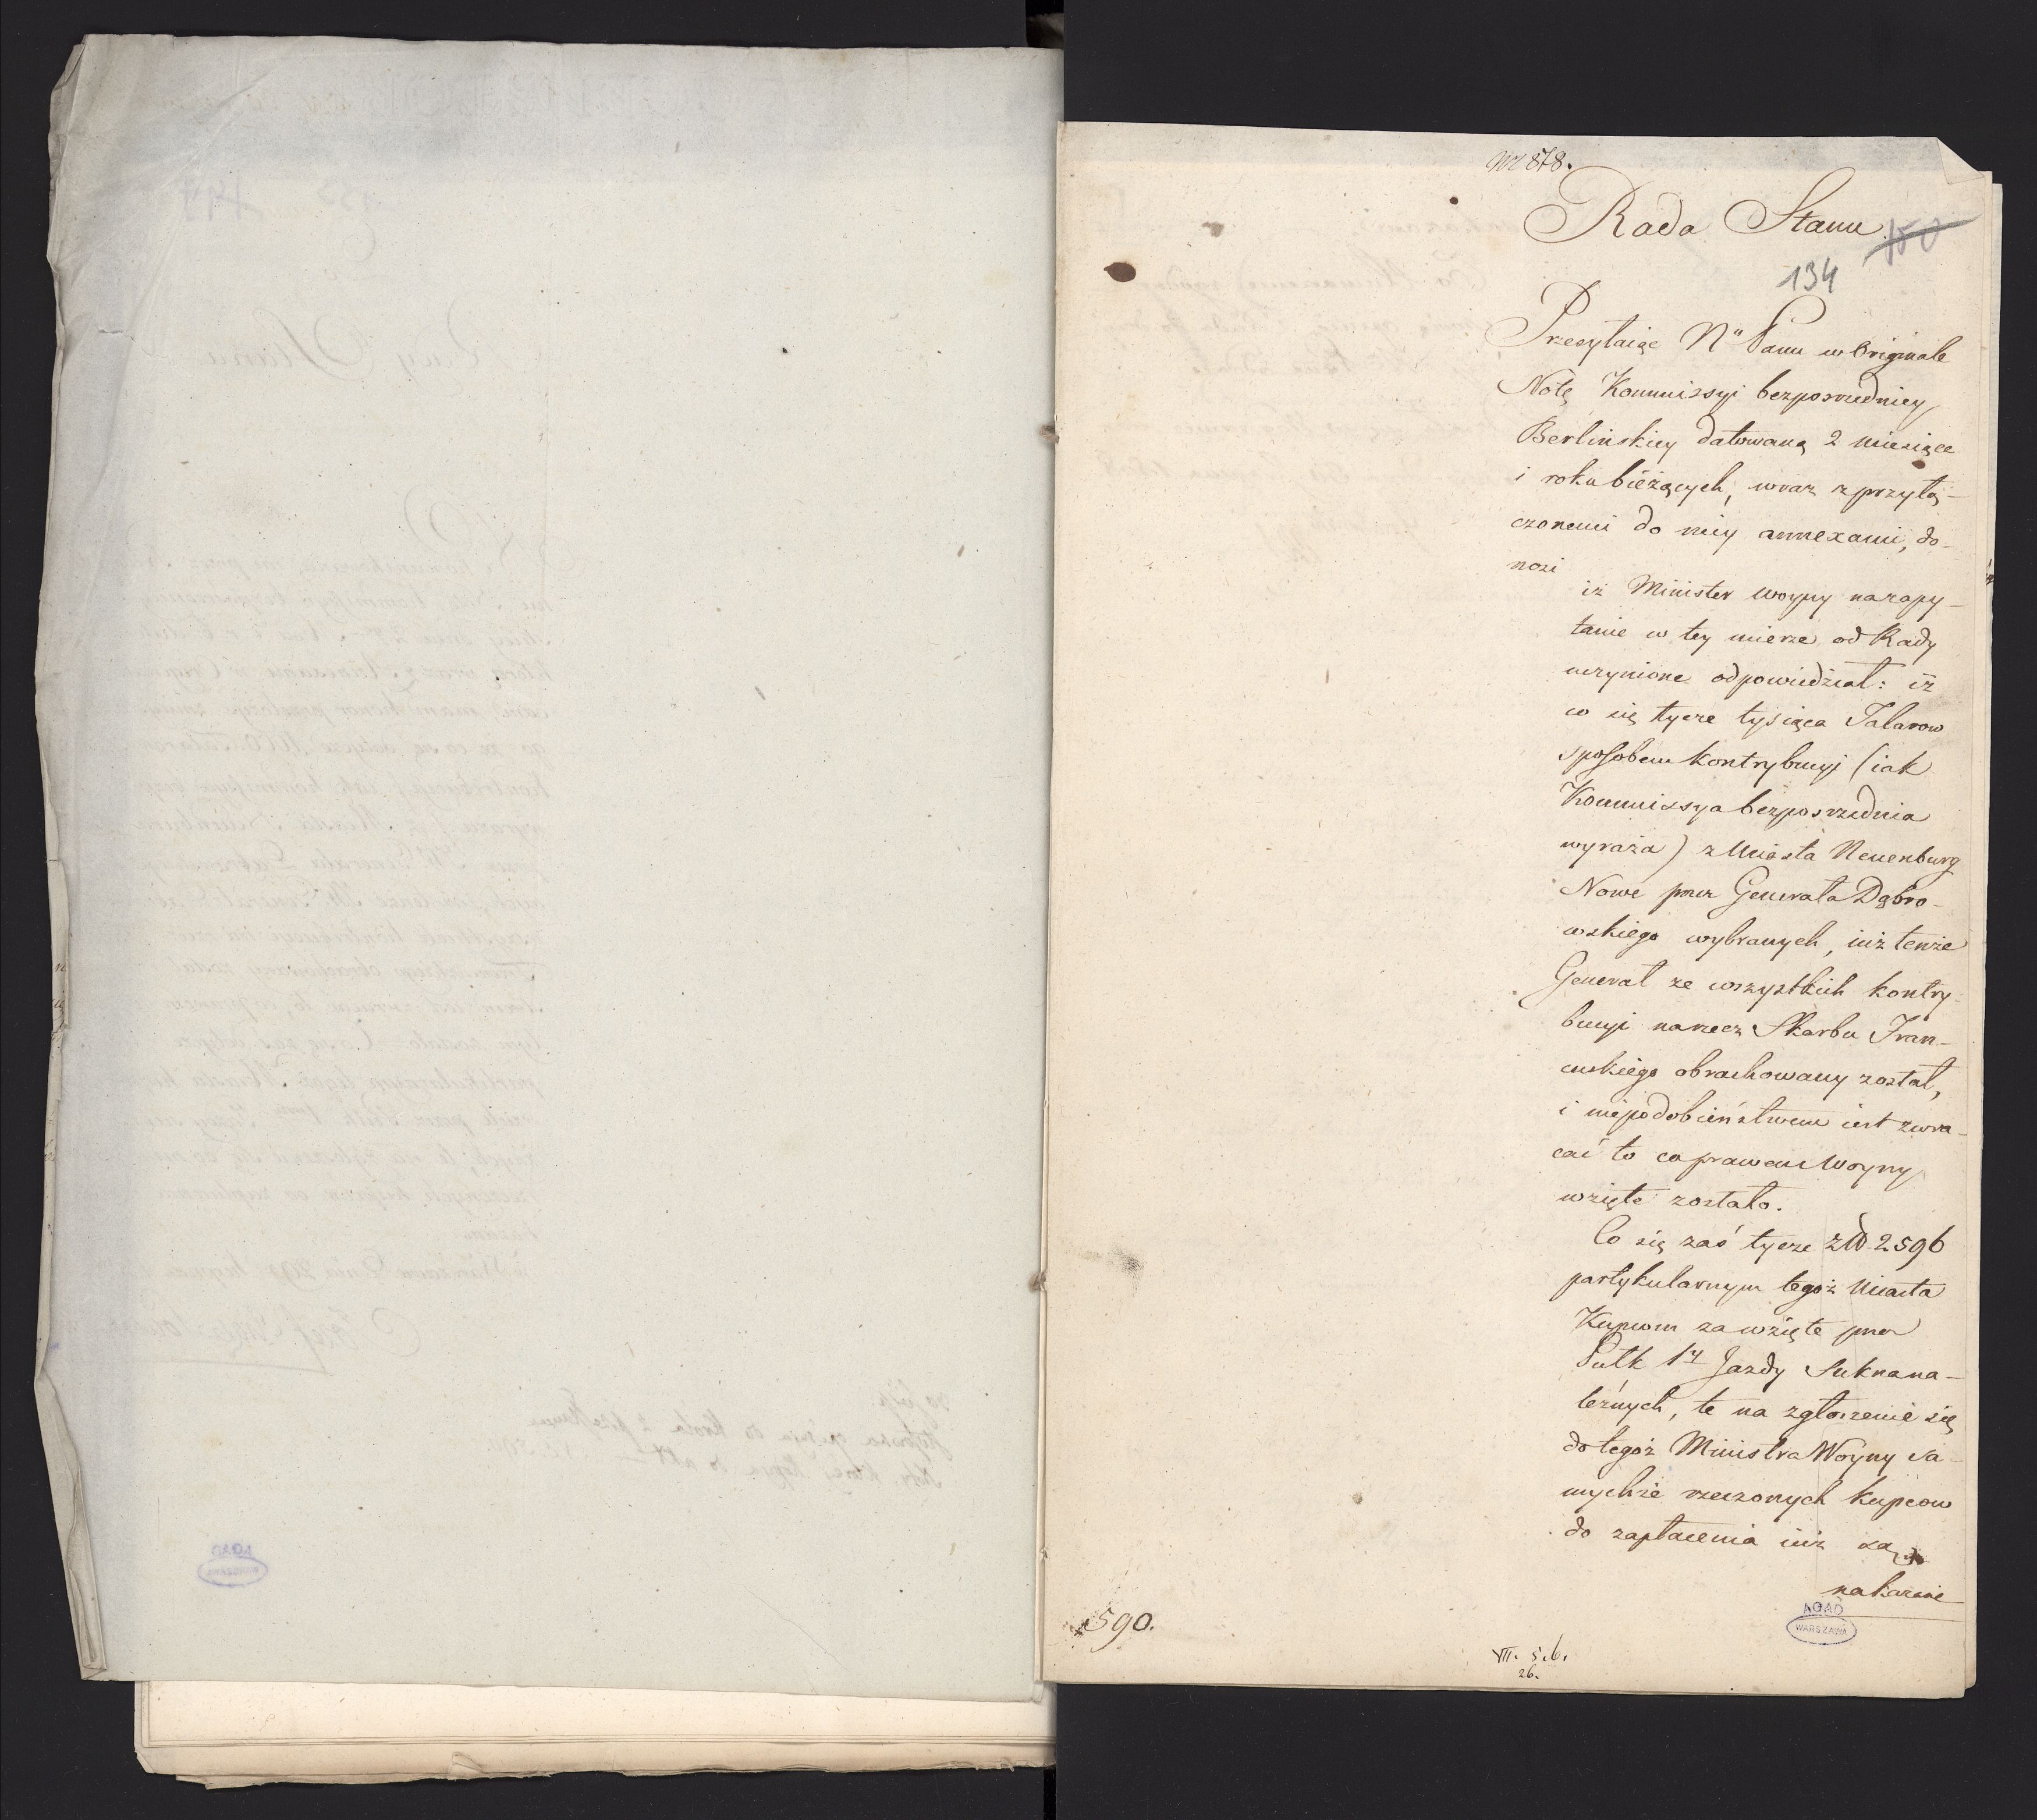 Nr 878.
Rada Stanu
150
134
Przesyłaiąc Nu Panu w Originale
Notę Kommissyi bezposrzedniey
Berlińskiey datowaną 2 miesiąca
i roku bieżących, wraz z przyłą-
czonemi do niey annexami, do-
nosi
iż Minister woyny na zapy-
tanie w tey mierze od Rady
uczynione odpowiedział: iż
co się tycze tysiąca Talarow
sposobem kontrybucyj (iak
Kommissya bezposrzednia
wyraża) z Miasta Neuenburg
Nowe przez Generała Dąbro-
wskiego wybranych, iuż tenże
Generał ze wszystkich kontry-
bucyi na rzecz Skarbu Fran-
cuskiego obrachowany został,
i niepodobieństwem iest zwra-
cać to co prawem Woyny
wzięte zostało.
Co się zaś tycze 2596
partykularnym tegoż Miasta
Kupcom za wzięte przez
Pułk 1y Jazdy Sukna na-
leżnych, te na zgłoszenie się
do tegoż Ministra Woyny sa-
mychże rzeczonych kupcow
do zapłacenia iuż są
nakazane
AGAD
WARSZAWA
590.
VII. 5.b.
26.